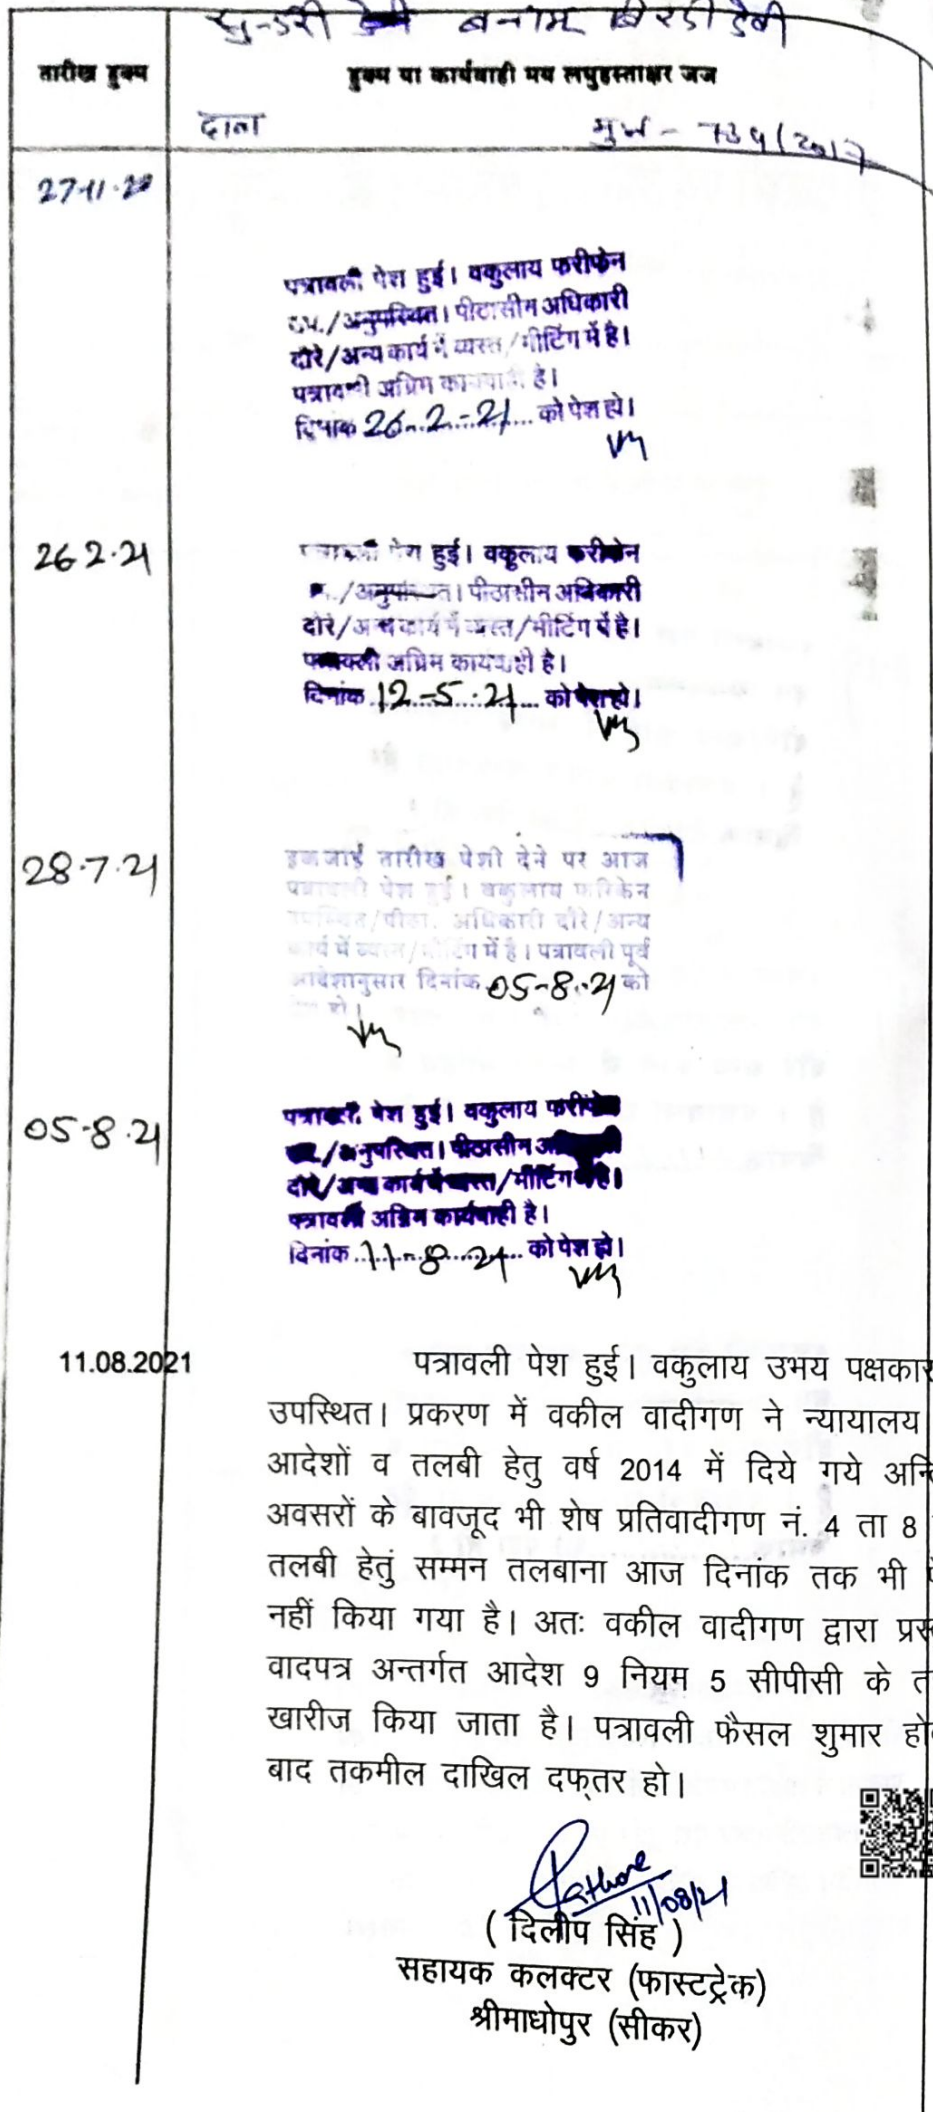 सुन्डरी देवी बनाम बिरदी देवी
तारीख हुक्म
हुक्म या कार्यवाही मय लघुहस्ताक्षर जज
दावा
मु.नं - 734/2017
27-11-20
पत्रावली पेश हुई। वकुलाय फरीकेन
उप./अनुपस्थित। पीठासीन अधिकारी
दौरे/अन्य कार्य में व्यस्त/मीटिंग में है।
पत्रावली अग्रिम कार्यवाही है।
दिनांक 26-2-21 को पेश हो।
26.2.21
पत्रावली पेश हुई। वकुलाय फरीकेन
उप./अनुपस्थित। पीठासीन अधिकारी
दौरे/अन्य कार्य में व्यस्त/मीटिंग में है।
पत्रावली अग्रिम कार्यवाही है।
दिनांक 12-5-21 को पेश हो।
28.7.21
इकजाई तारीख पेशी देने पर आज
पत्रावली पेश हुई। वकुलाय फरिकेन
उपस्थित/पीठा. अधिकारी दौरे/अन्य
कार्य में व्यस्त/मीटिंग में है। पत्रावली पूर्व
आदेशानुसार दिनांक 05-8-21 को
पेश हो।
05-8-21
पत्रावली पेश हुई। वकुलाय फरीकेन
उप./अनुपस्थित। पीठासीन अधिकारी
दौरे/अन्य कार्य में व्यस्त/मीटिंग में है।
पत्रावली अग्रिम कार्यवाही है।
दिनांक 11-8-21 को पेश हो।
11.08.2021
पत्रावली पेश हुई। वकुलाय उभय पक्षकार
उपस्थित। प्रकरण में वकील वादीगण ने न्यायालय
आदेशों व तलबी हेतु वर्ष 2014 में दिये गये
अवसरों के बावजूद भी शेष प्रतिवादीगण नं. 4 ता 8
तलबी हेतुं सम्मन तलबाना आज दिनांक तक भी
नहीं किया गया है। अतः वकील वादीगण द्वारा
वादपत्र अन्तर्गत आदेश 9 नियम 5 सीपीसी के
खारीज किया जाता है। पत्रावली फैसल शुमार
बाद तकमील दाखिल दफ्तर हो।
Rathore
11/08/21
( दिलीप सिंह )
सहायक कलक्टर (फास्टट्रेक)
श्रीमाधोपुर (सीकर)